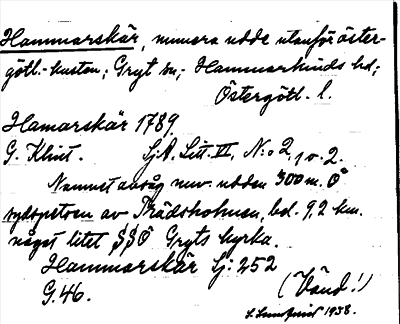 Hammarskär, numera udde utanför öster-
götl.-kusten; Gryt sn,- Hammarkinds hd;
Östergötl. l.
Hamarskär 1789.
G. Klint. Sj.A. Litt. VI, N:o 2, 1 o. 2.
Namnet avsåg nuv. udden 300 m. Ö
sydspetsen av Trädsholmen, bel. 9,2 km.
något litet SSÖ Gryts kyrka.
Hammarskär Sj: 252
G. 46. (Vänd!)
1938.